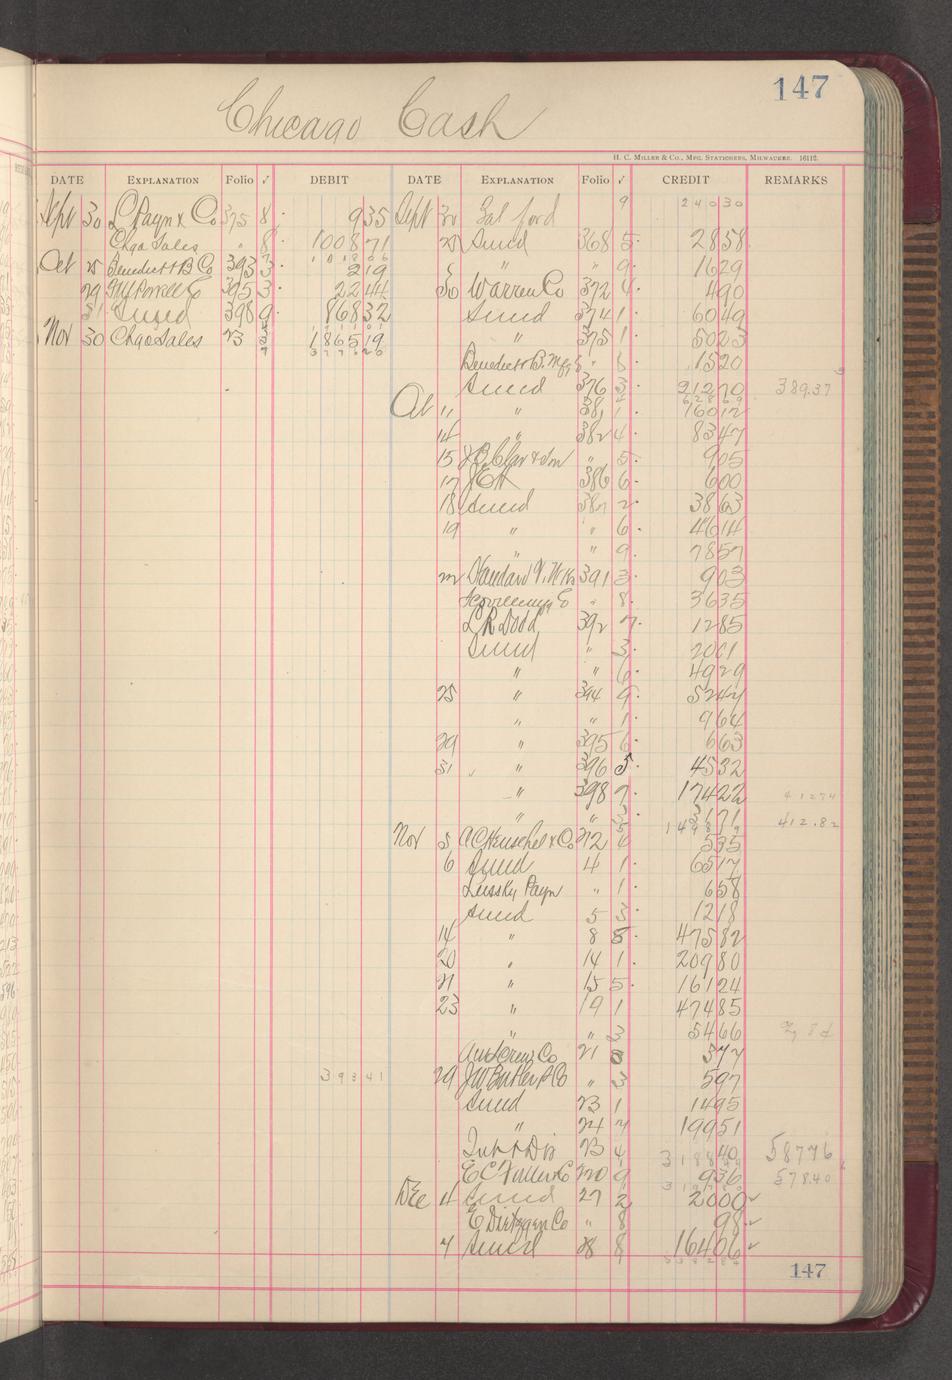 147
Chicago Cash
H. C. Miller & Co., Mfg. Stationers, Milwaukee. 16112.
DATE EXPLANATION Folio √ DEBIT DATE EXPLANATION Folio √ CREDIT REMARKS
Sept 30 L Payn & Co 375 8 935 Sept 9 24030
Chgo Sales " 8 100871 25 Sund 368 5 2858
Oct 25 Benedict B Co 393 3 219 " " 9 1629
29 395 3 2244 30 Warren Co 372 4 490
31 Sund 398 9 86832 Sund 374 1 6049
Nov 30 Chgo Sales 23 186519 " 375 1 5023
377626 Benedict B. Mfg " 1520
Sund 376 3 21270 38937
Oct 11 " 381 1 16012
14 " 382 4 8347
15 " 5 905
17 386 6 600
18 Sund 387 2 3863
19 " " 6 4614
" " 9 7857
Standard 391 3 903
" 8 3635
L R Dodd 392 7 1285
Sund " 3 2001
" " 6 4929
25 " 394 9 5247
" " 1 964
29 " 395 6 663
31 " 396 5 4532
" 398 7 17422 41274
" " 3 3171 412.82
Nov 5 A C Henschel & Co 212 4 535
6 Sund 4 1 6517
Lussky Payn " 1 658
Sund 5 3 1218
14 " 8 8 47582
20 " 14 1 20980
21 " 15 5 16124
23 " 19 1 47485
" " 3 5466
Am Screw Co 21 8 377
39341 29 J W Butler P Co " 3 597
Sund 23 1 1495
" 24 7 19951
Int & Dis 23 4 40 58776
E C Co 220 9 936 57840
Dec 4 Sund 27 2 2000 ✓
E Dietzgen Co " 8 98 ✓
7 Sund 28 8 16406 ✓
147